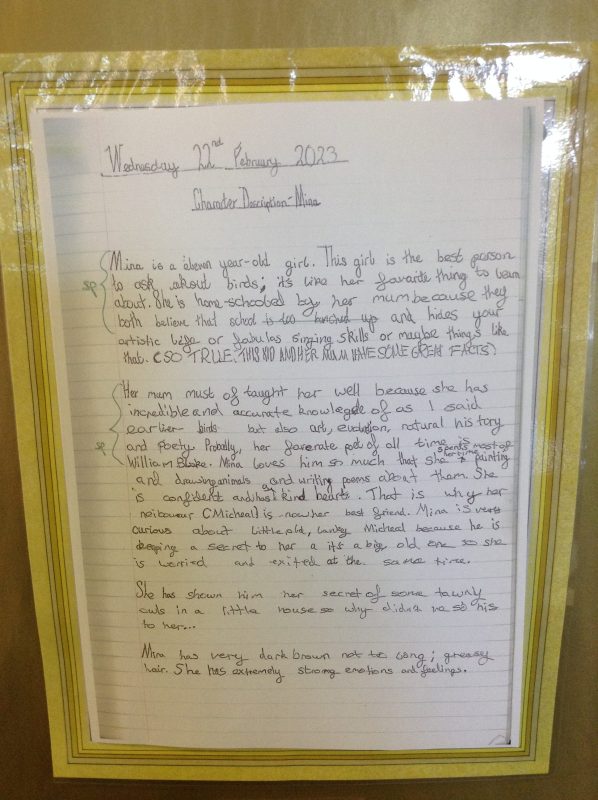 Wednesday 22nd February 2023
Character Description-Mina
Mina is a eleven year-old girl. This girl is the best person
to ask about birds; it's like her favarite thing to learn
about. She is home-schooled by her mum because they
sp
both believe that school is too and hides your
artistic or fabules singing skills or maybe things like
that. (SO TRUE; THIS KID AND HER MUM HAVE SOME GREAT FACTS)
Her mum must of taught her well because she has
incredible and accurate knowlegde of as I said
earlier birds but also art, evolution, natural history
sp
and poetry. Probably, her faverate poet of all time is
William Blake. Mina loves him so much that she spends most of her time painting
and drawing animals and writing poems about them. She
is confident and has kind hearts. That is why her
neibouur (Micheal) is now her best friend. Mina is very
curious about little old, lanky Micheal because he is
keeping a secret to her a it's a big old one so she
is worried and exited at the same time.
She has shown him her secret of some tawny
owls in a little house so why didn't he so his
to her...
Mina has very dark brown not to long; greasy
hair. She has extremely strong emotions and feelings.